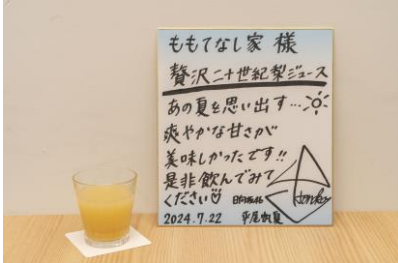 ももてなし家 様
贅沢二十世紀梨ジュース
あの夏を思い出す…
爽やかな甘さが
美味しかったです!!
是非飲んでみて
ください 日向坂46
2024.7.22 平尾帆夏